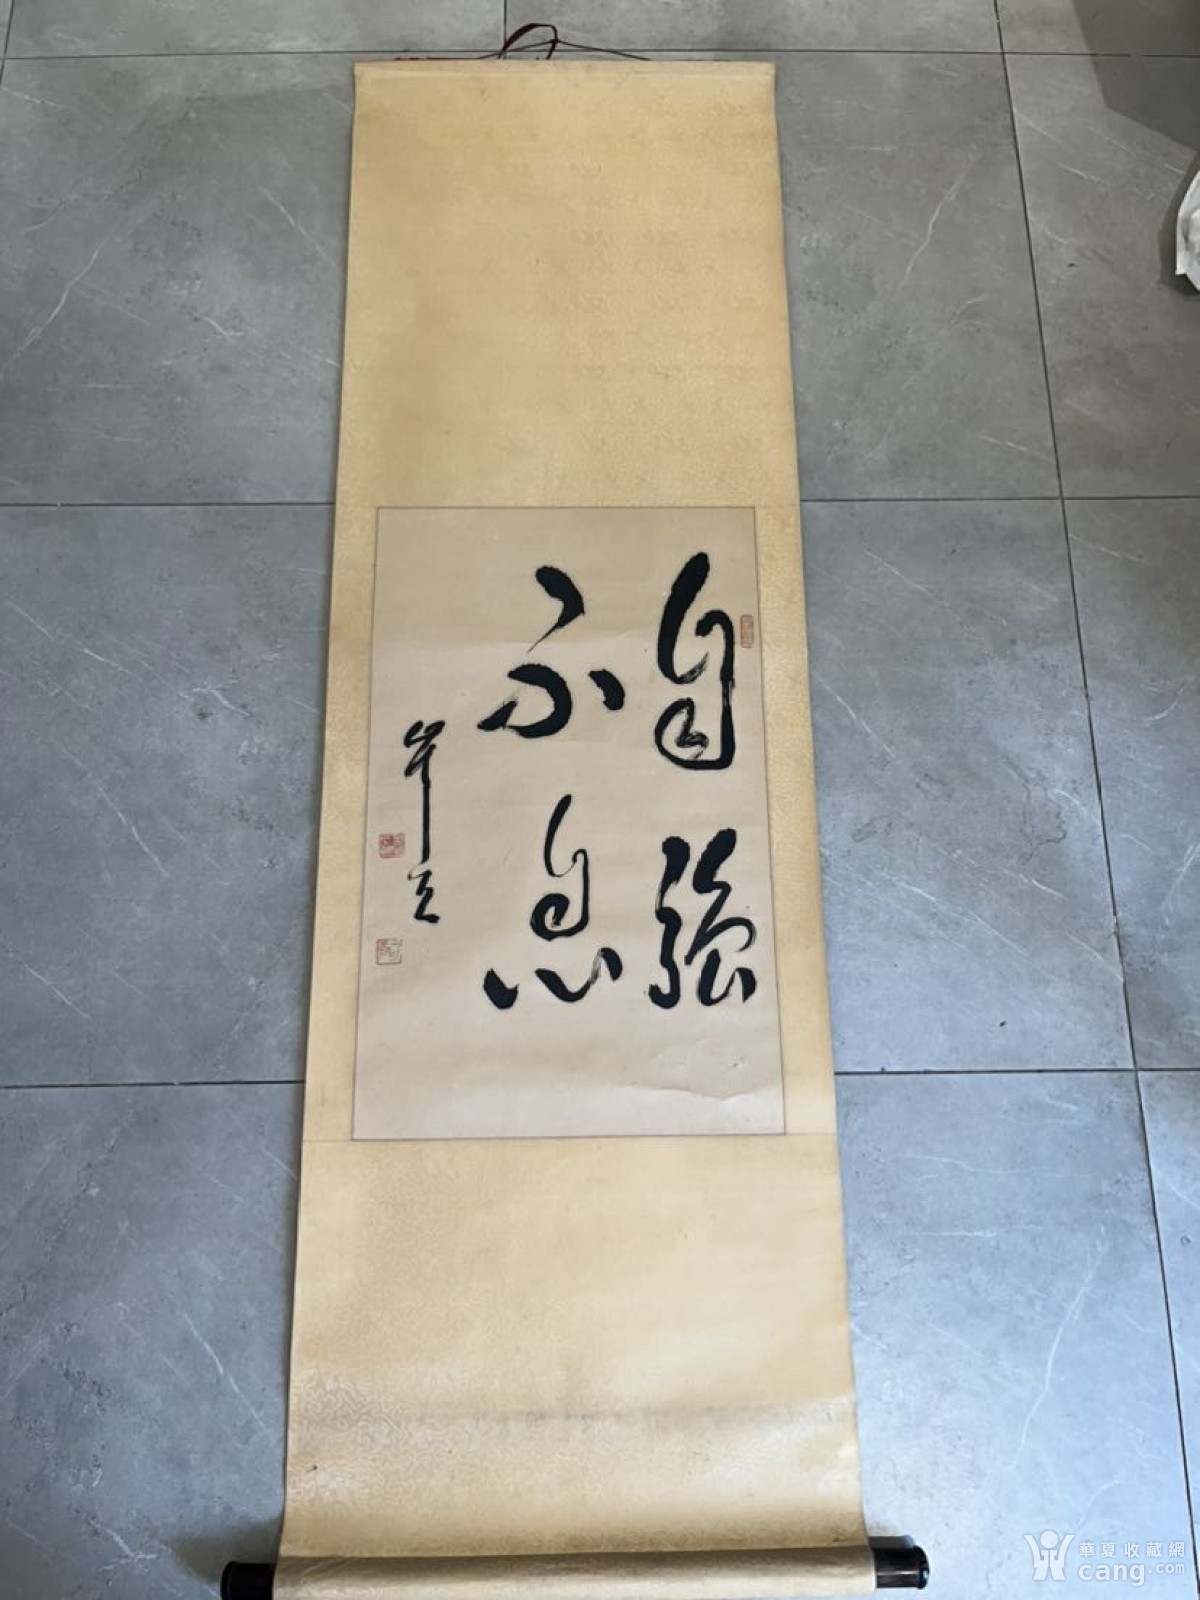 自強
不息
華夏收藏網
cang.com